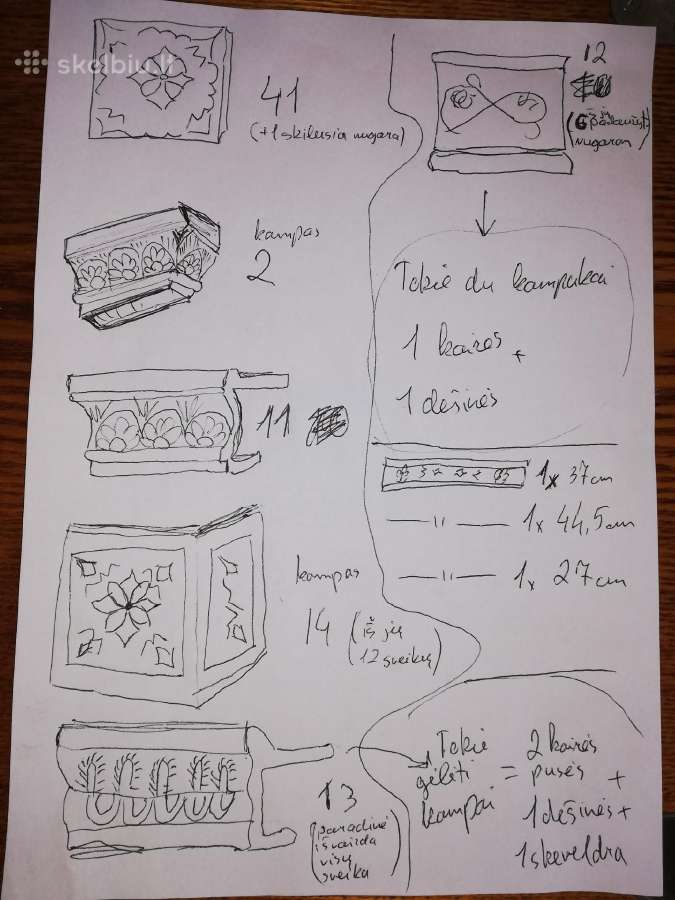 skelbiu.lt
41
(+1 skilusia nugara)
kampas
2
11
kampas
14 (iš jų
12 sveikų)
13
(paradinė
išvaizda
visų
sveika)
12
(6 iš jų
nugaron
Tokie du kampukai
1 kairės +
1 dešinės
1x 37cm
— 11 — 1x 44,5cm
— 11 — 1x 27cm
Tokie
gėlėti
kampai
= 2 kairės
pusės +
1 dešinės +
1 skeveldra